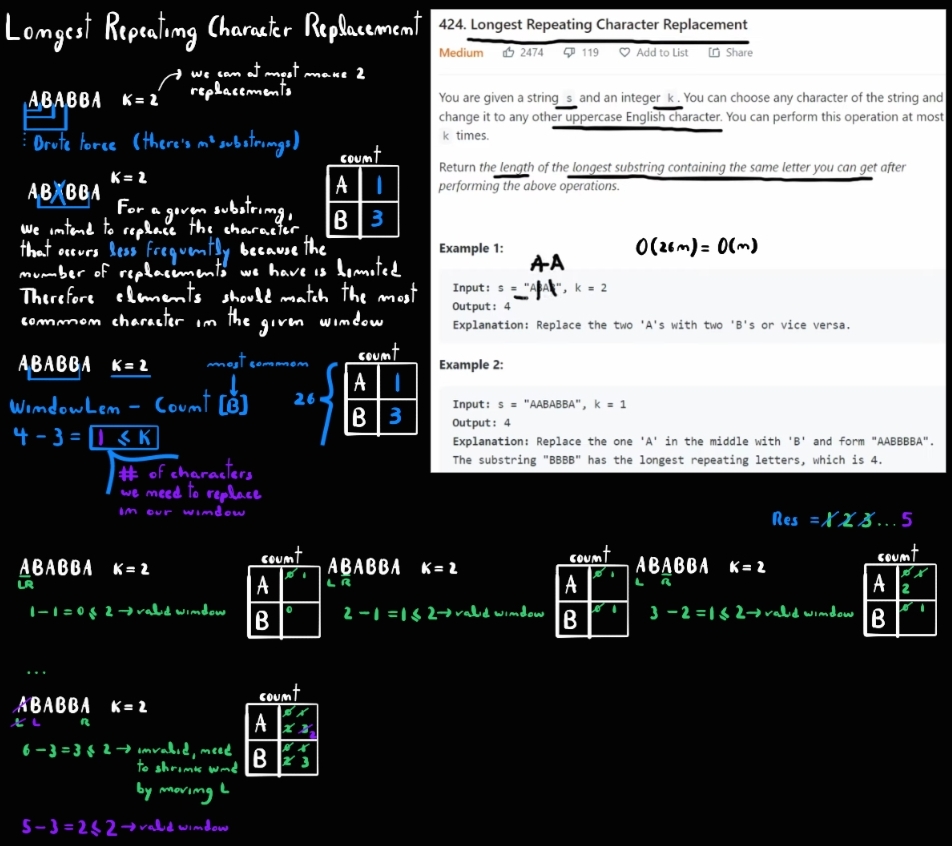 Longest Repeating Character Replacement
ABABBA K=2
we can at most make 2
replacements
: Brute force (there's n² substrings)
ABABBA K=2
count
A 1
B 3
For a given substring,
we intend to replace the character
that occurs less frequently because the
number of replacements we have is limited
Therefore elements should match the most
common character in the given window
ABABBA K=2
most common
WindowLen - Count [B]
4 - 3 = 1 ≤ K
# of characters
we need to replace
in our window
26
count
A 1
B 3
424. Longest Repeating Character Replacement
Medium 2474 119 Add to List Share
You are given a string s and an integer k. You can choose any character of the string and
change it to any other uppercase English character. You can perform this operation at most
k times.
Return the length of the longest substring containing the same letter you can get after
performing the above operations.
Example 1:
O(26n) = O(n)
A-A
Input: s = "ABAB", k = 2
Output: 4
Explanation: Replace the two 'A's with two 'B's or vice versa.
Example 2:
Input: s = "AABABBA", k = 1
Output: 4
Explanation: Replace the one 'A' in the middle with 'B' and form "AABBBBA".
The substring "BBBB" has the longest repeating letters, which is 4.
Res = 1 2 3 ... 5
ABABBA K=2
LR
1-1=0 ≤ 2 → valid window
count
A 0 1
B 0
ABABBA K=2
L R
2-1=1 ≤ 2 → valid window
count
A 0 1
B 0 1
ABABBA K=2
L R
3-2=1 ≤ 2 → valid window
count
A 0 1
2
B 0 1
...
ABABBA K=2
L L R
6-3=3 ≤ 2 → invalid, need
to shrink wnd
by moving L
5-3=2 ≤ 2 → valid window
count
A 0 1
2 3 2
B 0 1
2 3